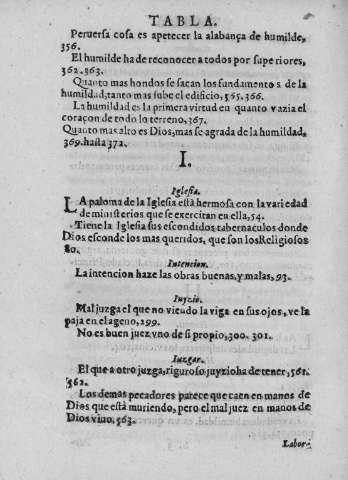 TABLA.
Peruersa cosa es apetecer la alabança de humilde,
356.
El humilde ha de reconocer a todos por superiores,
362.363.
Quanto mas hondos se sacan los fundamentos de la
humildad, tanto mas sube el edificio, 365.366.
La humildad es la primera virtud en quanto vazia el
coraçon de todo lo terreno, 367.
Quanto mas alto es Dios, mas se agrada de la humildad.
369. hasta 372.
I.
Iglesia.
LA paloma de la Iglesia està hermosa con la variedad
de ministerios que se exercitan en ella, 54.
Tiene la Iglesia sus escondidos tabernaculos donde
Dios esconde los mas queridos, que son los Religiosos
80.
Intencion.
La intencion haze las obras buenas, y malas, 93.
Iuyzio.
Mal juzga el que no viẽdo la viga en sus ojos, ve la
paja en el ageno, 299.
No es buen juez vno de si propio, 300. 301.
Iuzgar.
El que a otro juzga, riguroso juyzio ha de tener, 561.
562.
Los demàs pecadores parece que caen en manos de
Dios que està muriendo, pero el mal juez en manos de
Dios viuo, 563.
Labor-